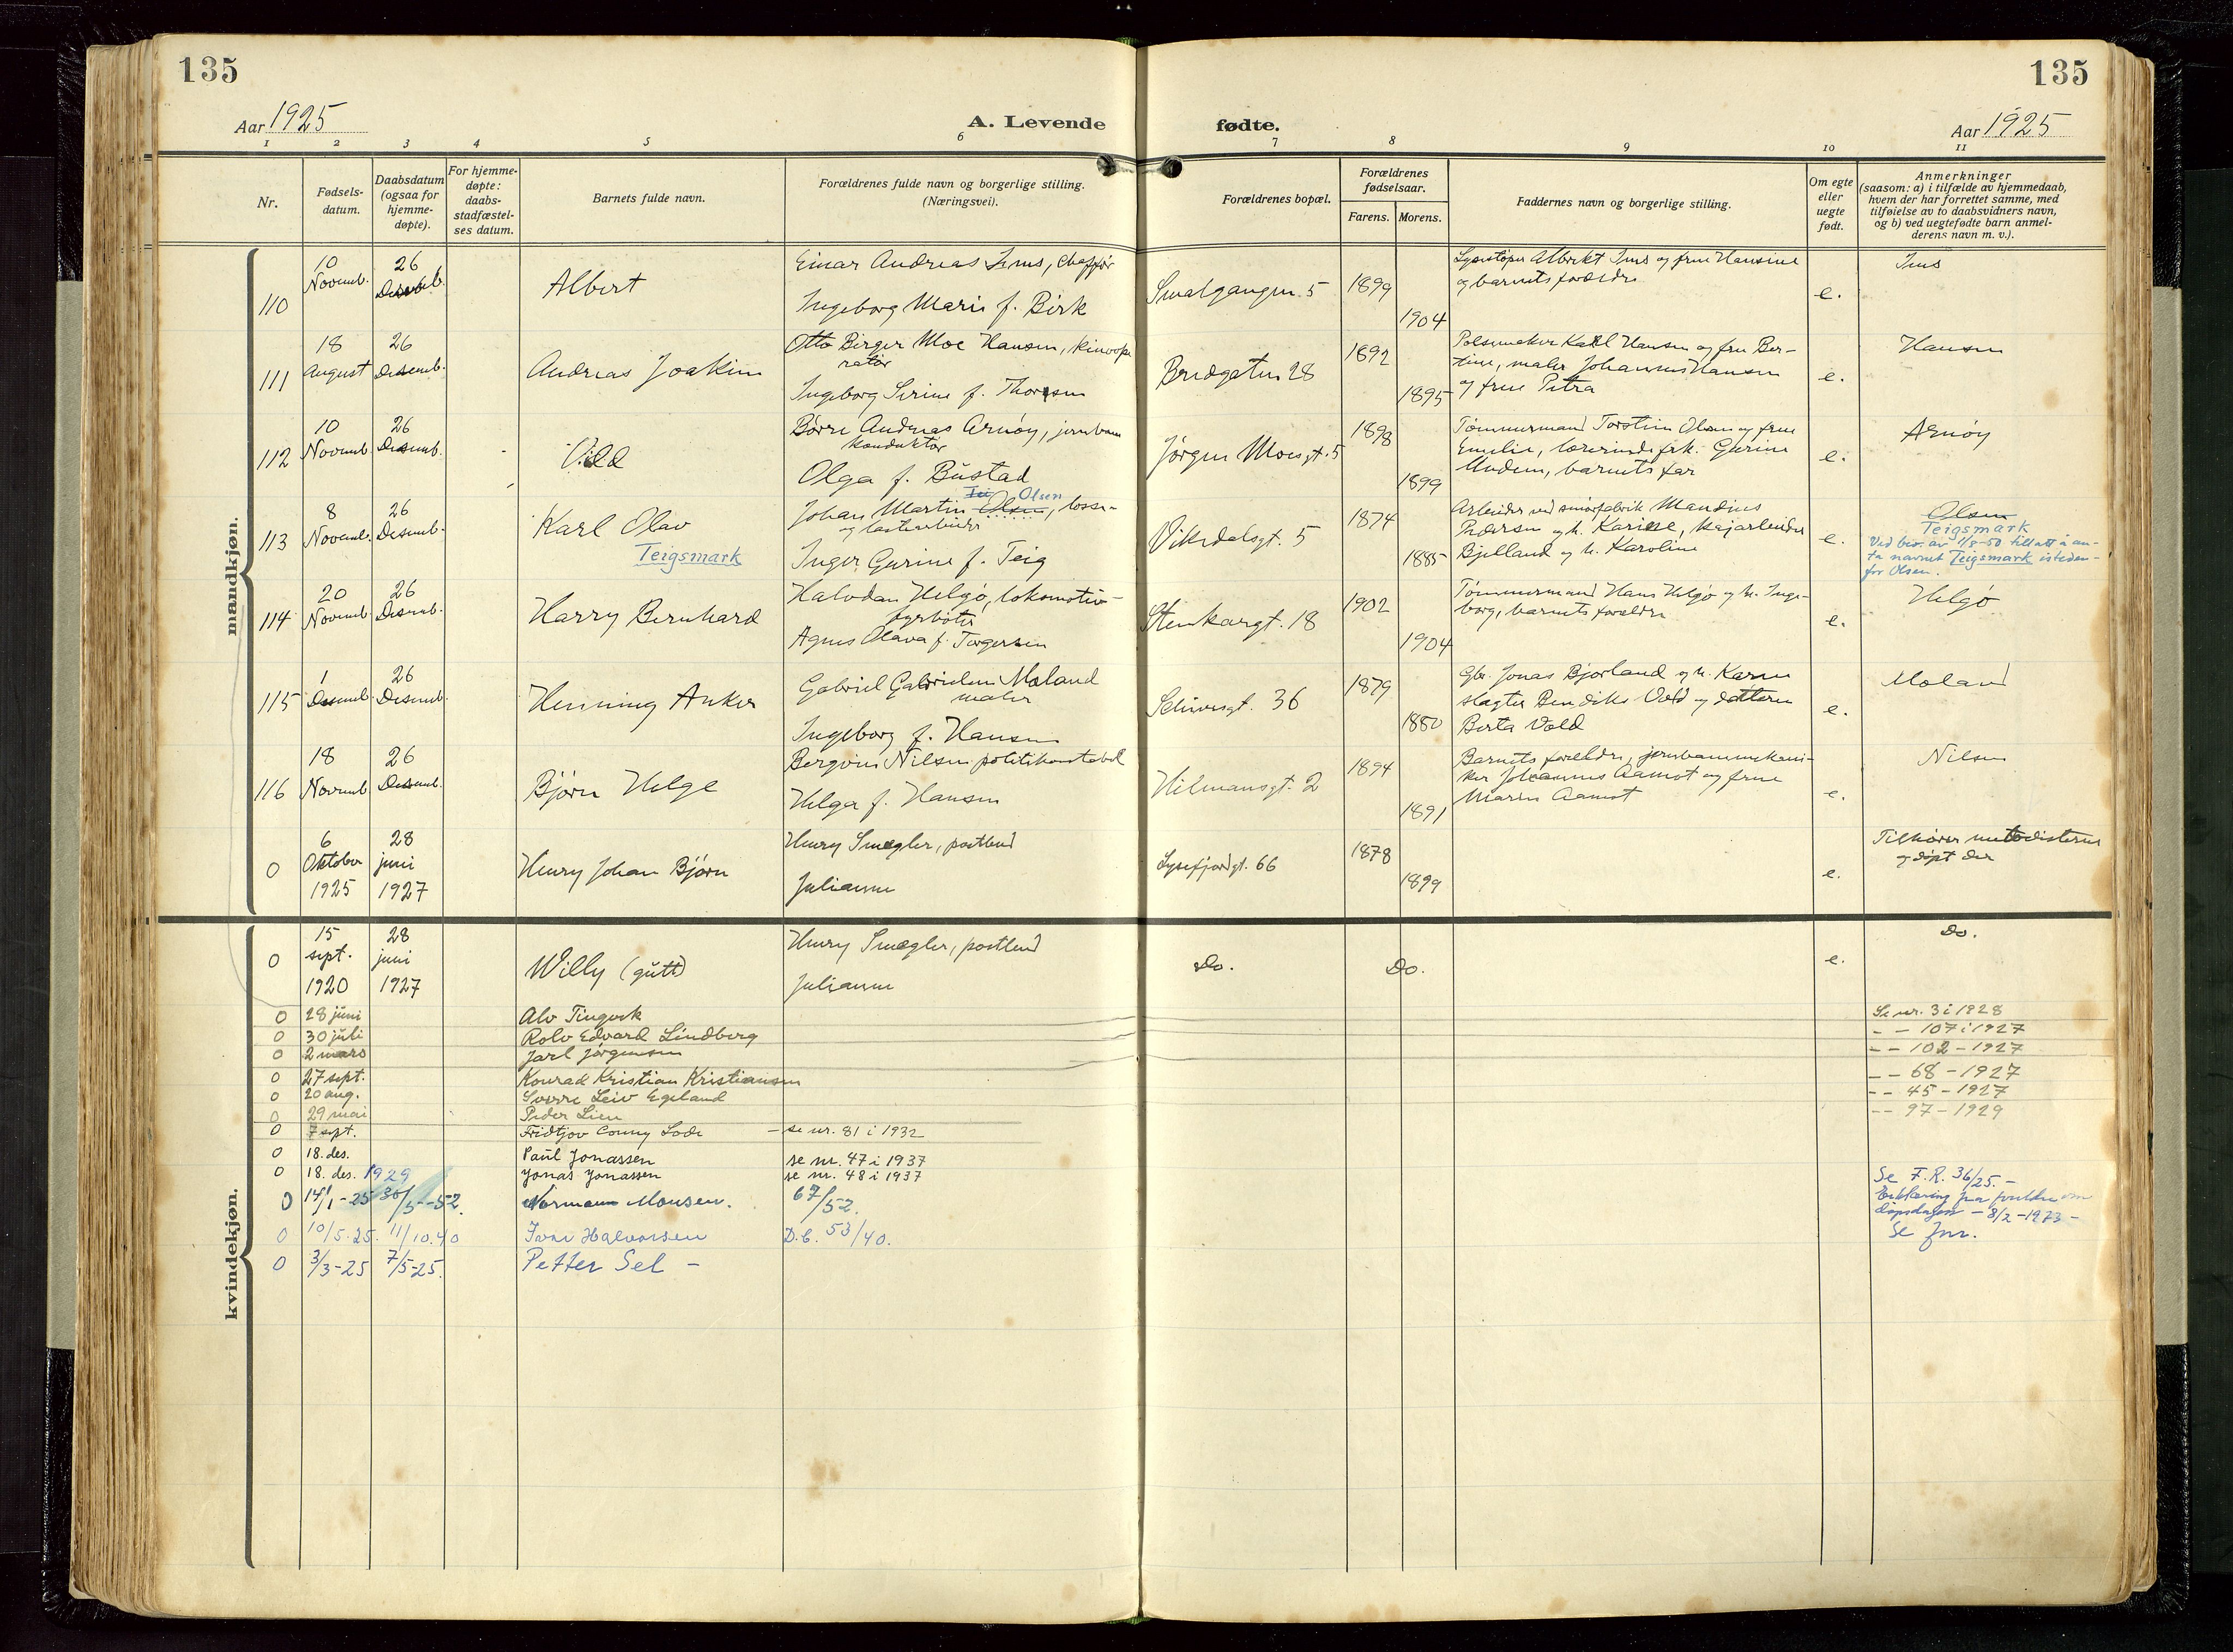 135
135
Aar 1925
A. Levende fødte.
Aar 1925
1 2 3 4 5 6 7 8 9 10 11
Nr.
Fødsels-datum.
Daabsdatum (ogsaa for hjemme-døpte).
For hjemme-døpte: daabs-stadfæstel-ses datum.
Barnets fulde navn.
Forældrenes fulde navn og borgerlige stilling. (Næringsvei).
Forældrenes bopæl.
Forældrenes fødselsaar.
Farens. Morens.
Faddernes navn og borgerlige stilling.
Om egte eller uegte født.
Anmerkninger (saasom: a) i tilfælde av hjemmedaab, hvem der har forrettet samme, med tilføielse av to daabsvidners navn, og b) ved uegtefødte barn anmel-derens navn m. v.).
mandkjøn.
110 10 Novemb. 26 Desemb. Albert
Einar Andreas Ims, chaffør
Ingeborg Marie f. Birk
Smalgangen 5 1899 1904
Albrekt Ims og frue Hansine
og barnets forældre
e. Ims
111 18 August 26 Desemb. Andreas Joakim
Otto Birger Moe Hansen, kinoope
ratør
Ingeborg Serine f. Thorsen
Bredgaten 28 1892 1895
Pølsemaker Karl Hansen og frue Ber-
tine, maler Johannes Hansen
og frue Petra
e. Hansen
112 10 Novemb. 26 Desemb. Odd
Børre Andreas Arnøy, jernbane
konduktør
Olga f. Bustad
Jørgen Moesgt. 5 1898 1899
Tømmermand Torstein Olsen og frue
Emelie, lærerinde frk. Gurine
Undem, barnets far
e. Arnøy
113 8 Novemb. 26 Desemb. Karl Olav
Teigsmark
Johan Martin Olsen, losse-
Olsen
og lastearbeider
Inger Gurine f. Teig
Vikedalsgt. 5 1874 1885
Arbeider ved smørfabrik Mandius
Pedersen og h. Karine, kajarbeider
Bjelland og h. Karoline
e. Olsen
Teigsmark
Ved bev. av 1/8-50 tillatt å an-
ta navnet Teigsmark isteden-
for Olsen.
114 20 Novemb. 26 Desemb. Harry Bernhard
Halvdan Helgø, lokomotiv-
fyrbøter
Agnes Olava f. Torgersen
Stenkargt. 18 1902 1904
Tømmermand Hans Helgø og h. Inge-
borg, barnets forældre
e. Helgø
115 1 Desemb. 26 Desemb. Henning Anker
Gabriel Gabrielsen Moland
maler
Ingeborg f. Hansen
36 1879 1880
Gbr. Jonas Bjorland og h. Karen
slagter Bendiks Vold og datteren
Berta Vold
e. Moland
116 18 Novemb. 26 Desemb. Bjørn Helge
Bergvin Nilsen politikonstabel
Helga f. Hansen
Hilmansgt. 2 1894 1891
Barnets forældre, jernbanemekani-
ker Johannes Aamot og frue
Maren Aamot
e. Nilsen
0 6 Oktober 1925 28 juni 1927 Henry Johan Bjørn
Henry Smegler, postbud
Julianne
Lysefjordgt. 66 1878 1899
e. Tilhører metodisterne
og døpt der
kvindekjøn.
0 15 sept. 1920 28 juni 1927 Willy (gutt)
Henry Smegler, postbud
Julianne
Do. Do. e. Do.
0 28 juni Alv Tingvik Se nr. 3 i 1928
0 30 juli Rolv Edvard Lindberg - - 107 i 1927
0 2 mars Jarl Jørgensen - - 102 - 1927
0 27 sept. Konrad Kristian Kristiansen - - 68 - 1927
0 20 aug. Sverre Leiv Egeland - - 45 - 1927
0 29 mai Peder Lien - - 97 - 1929
0 7 sept. Fridtjov Conny Lode - se nr. 81 i 1932
0 18. des. Paul Jonassen se nr. 47 i 1937
0 18. des. 1929 Jonas Jonassen se nr. 48 i 1937
0 14/1-25 30/5-52. Norman Monsen. 67/52.
Se F.R. 36/25. -
Erklæring fra foreldre om
dåpsdagen - 8/2-1973 -
0 10/5.25. 11/10.40 Ivar Halvorsen D.b. 53/40.
Se fnr.
0 3/3-25 7/5-25. Petter Sel -